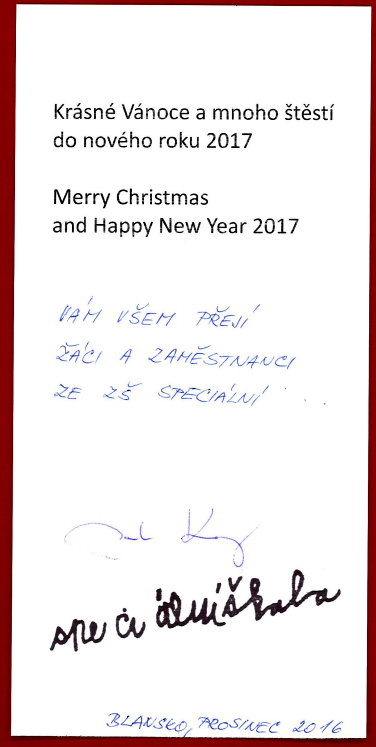 Krásné Vánoce a mnoho štěstí
do nového roku 2017
Merry Christmas
and Happy New Year 2017
VÁM VŠEM PŘEJÍ
ŽÁCI A ZAMĚSTNANCI
ZE ZŠ SPECIÁLNÍ
BLANSKO, PROSINEC 2016